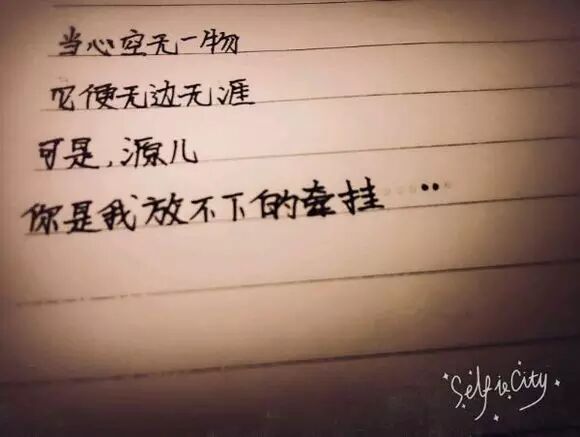 当心空无一物
它便无边无涯
可是，源儿
你是我放不下的牵挂……
SelfieCity